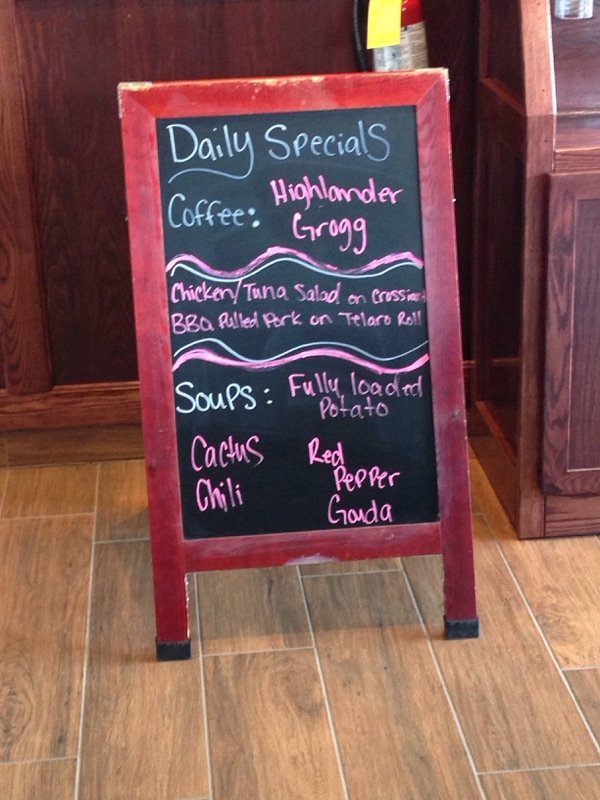 Daily Specials
Coffee: Highlander
Grogg
Chicken/Tuna Salad on Crossiant
BBQ Pulled Pork on Telaro Roll
Soups: Fully loaded
Potato
Cactus
Chili
Red
Pepper
Gouda